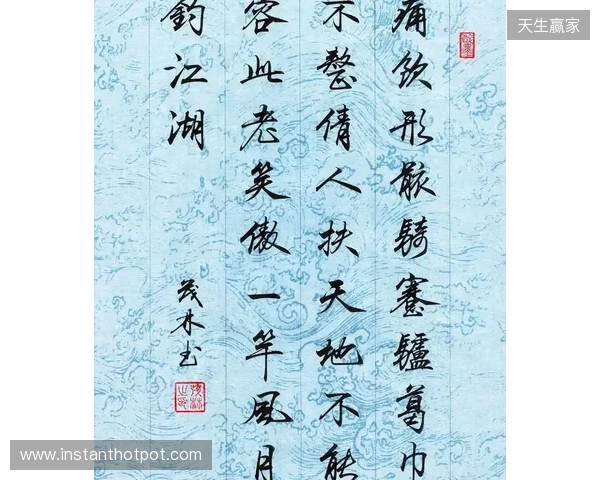 天生赢家
痛飲形骸騎蹇驢葛巾
不整倩人扶天地不能
容此老笑傲一竿風月
釣江湖
茂林书
www.instanthotpot.com